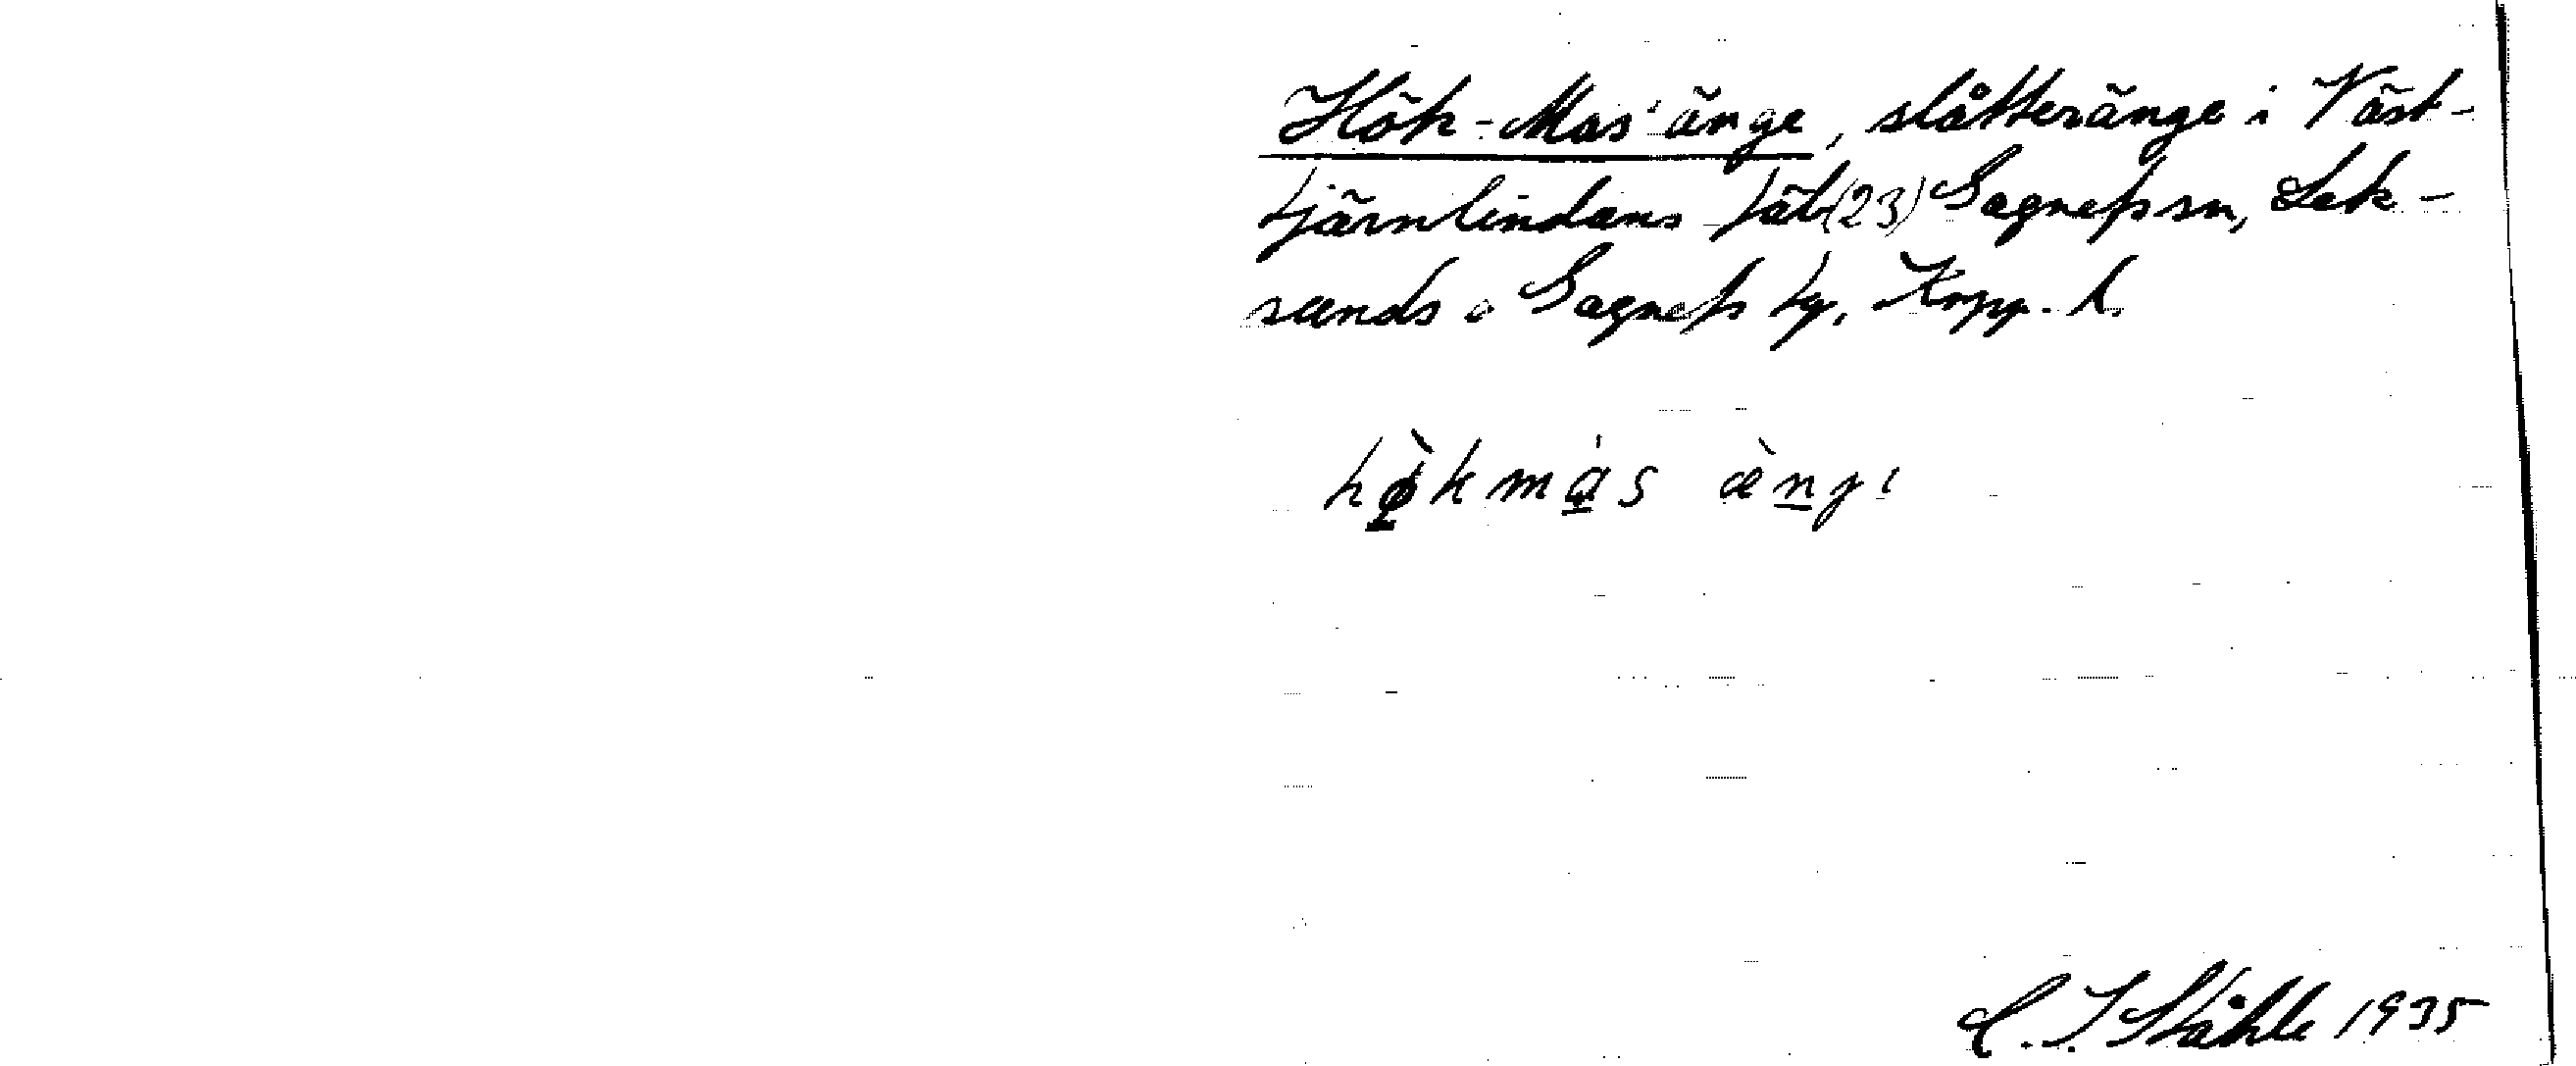 Hök-Mas' änge, slåtteränge i Väst-
tjärnlindans fäb(23) Gagnefs sn, Lek-
sands o Gagnefs tg. Kopp. l.
hø̀kmás æ̀nʒı
C. I. Ståhle 1935